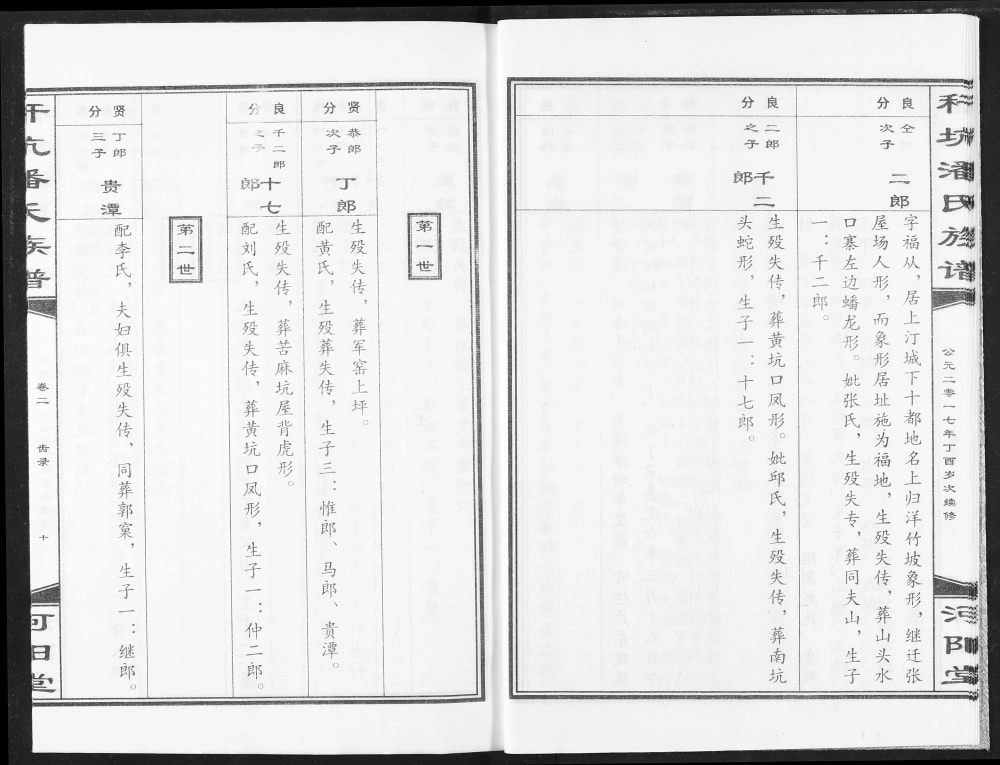 科坑潘氏族谱
公元二零一七年丁酉岁次续修
河阳堂
良分
仝次子
二郎
字福从，居上汀城下十都地名上归洋竹坡象形，继迁张
屋场人形，而象形居址施为福地，生殁失传，葬山头水
口寨左边蟠龙形。妣张氏，生殁失专，葬同夫山，生子
一：千二郎。
良分
二郎之子
千二郎
生殁失传，葬黄坑口凤形。妣邱氏，生殁失传，葬南坑
头蛇形，生子一：十七郎。
第一世
贤分
恭郎次子
丁郎
生殁失传，葬军窑上坪。
配黄氏，生殁葬失传，生子三：惟郎、马郎、贵潭。
良分
千二郎之子
十七郎
生殁失传，葬苦麻坑屋背虎形。
配刘氏，生殁失传，葬黄坑口凤形，生子一：仲二郎。
第二世
贤分
丁郎三子
贵潭
配李氏，夫妇俱生殁失传，同葬郭窠，生子一：继郎。
卷二
齿录
十